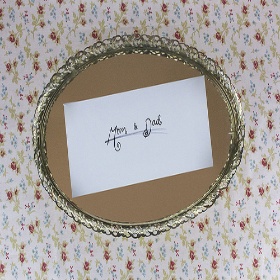 Mom & Dad